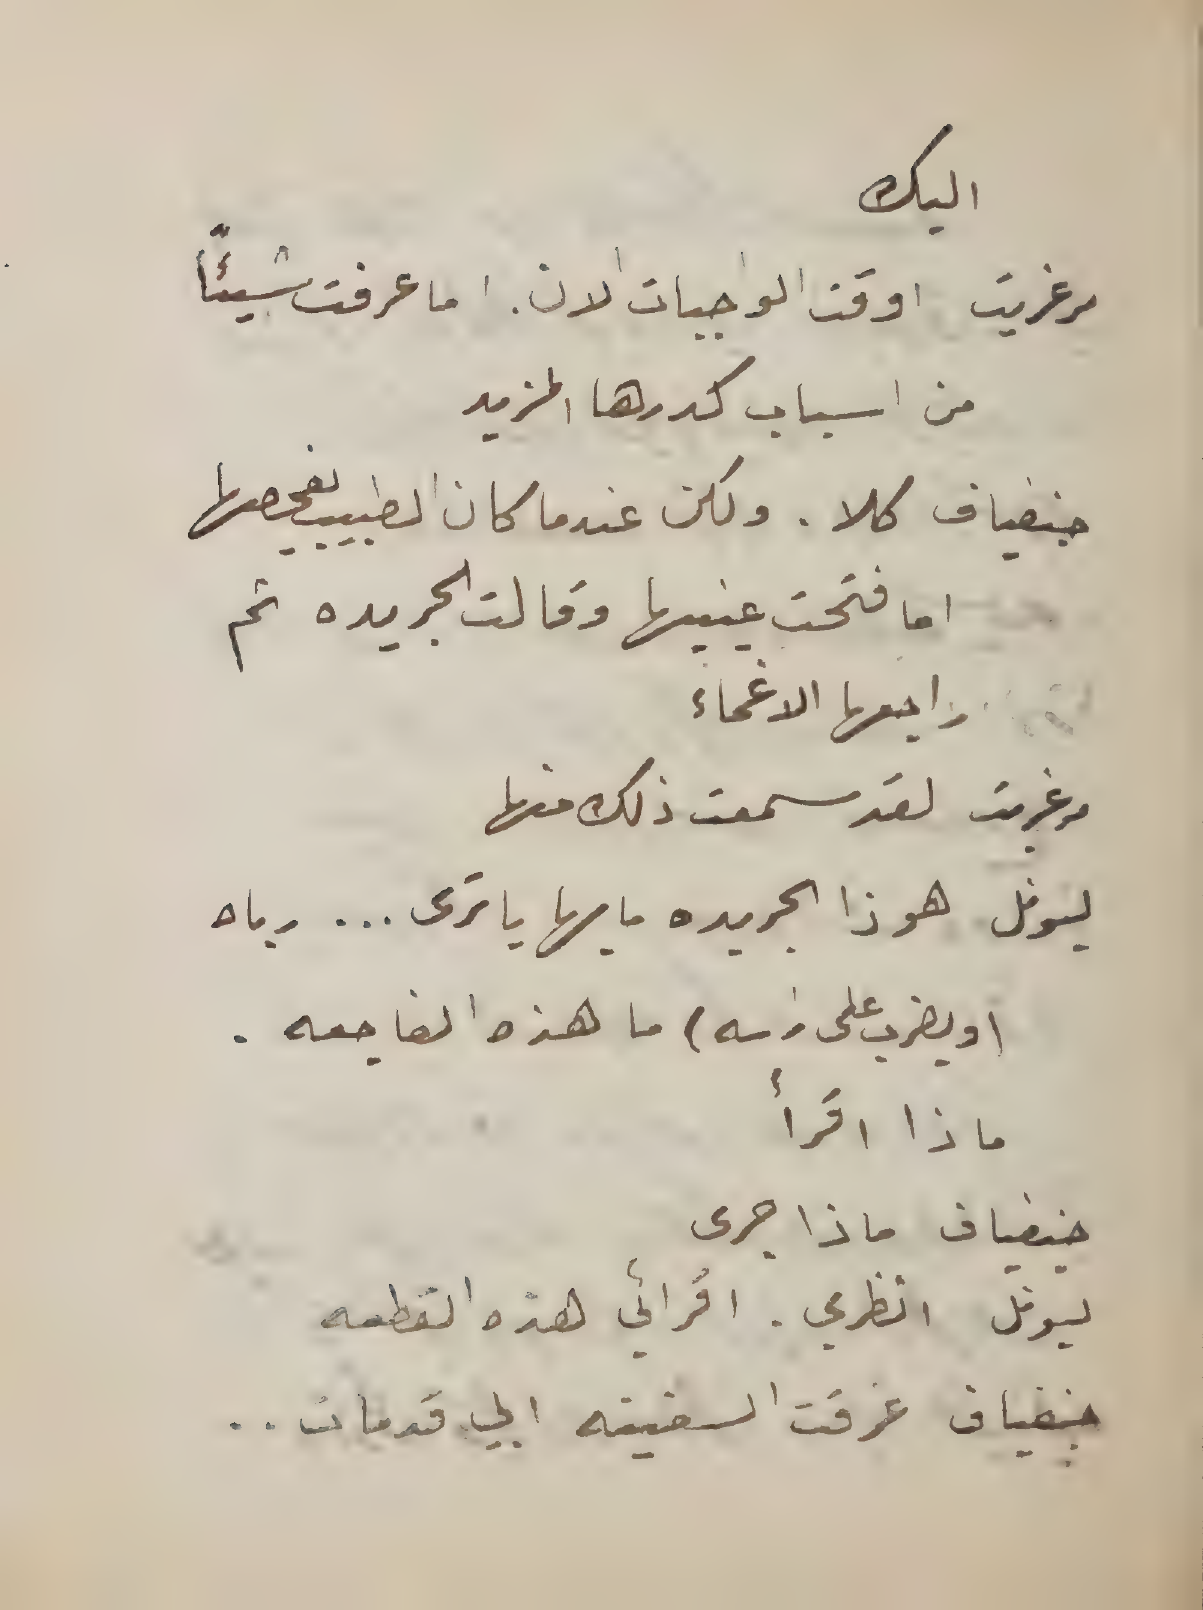 اليك
مرغريت اوقت الواجبات الان. اما عرفت شيئًا
من اسباب كدرها المزيد
جنفياف كلا. ولكن عندما كان الطبيب يفحصها
اما فتحت عينيها وقالت الجريده ثم
راجعها الاغماء
مرغريت لقد سمعت ذلك منها
ليونل هوذا الجريده ما بها يا ترى ... رباه
(ويضرب على راسه) ما هذه الفاجعه.
ماذا اقرأ
جنفياف ماذا جرى
ليونل انظري. اقرائي هذه القطعه
جنفياف غرقت السفينه ابي قد مات..